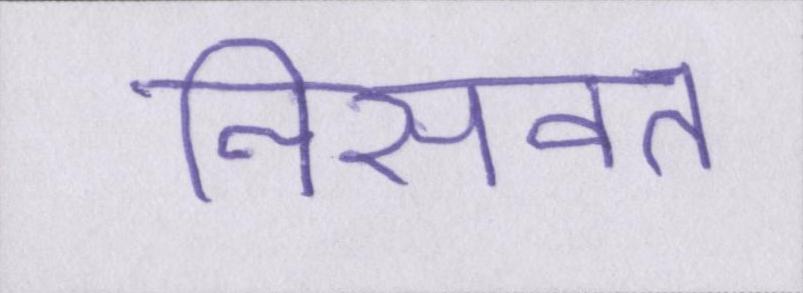 निसवत